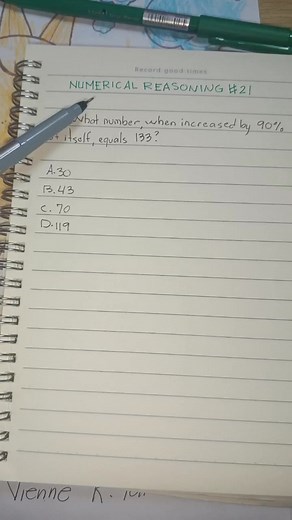 Record good times
NUMERICAL REASONING #21
What number, when increased by 90%
itself, equals 133?
A. 30
B. 43
C. 70
D. 119
Vienne